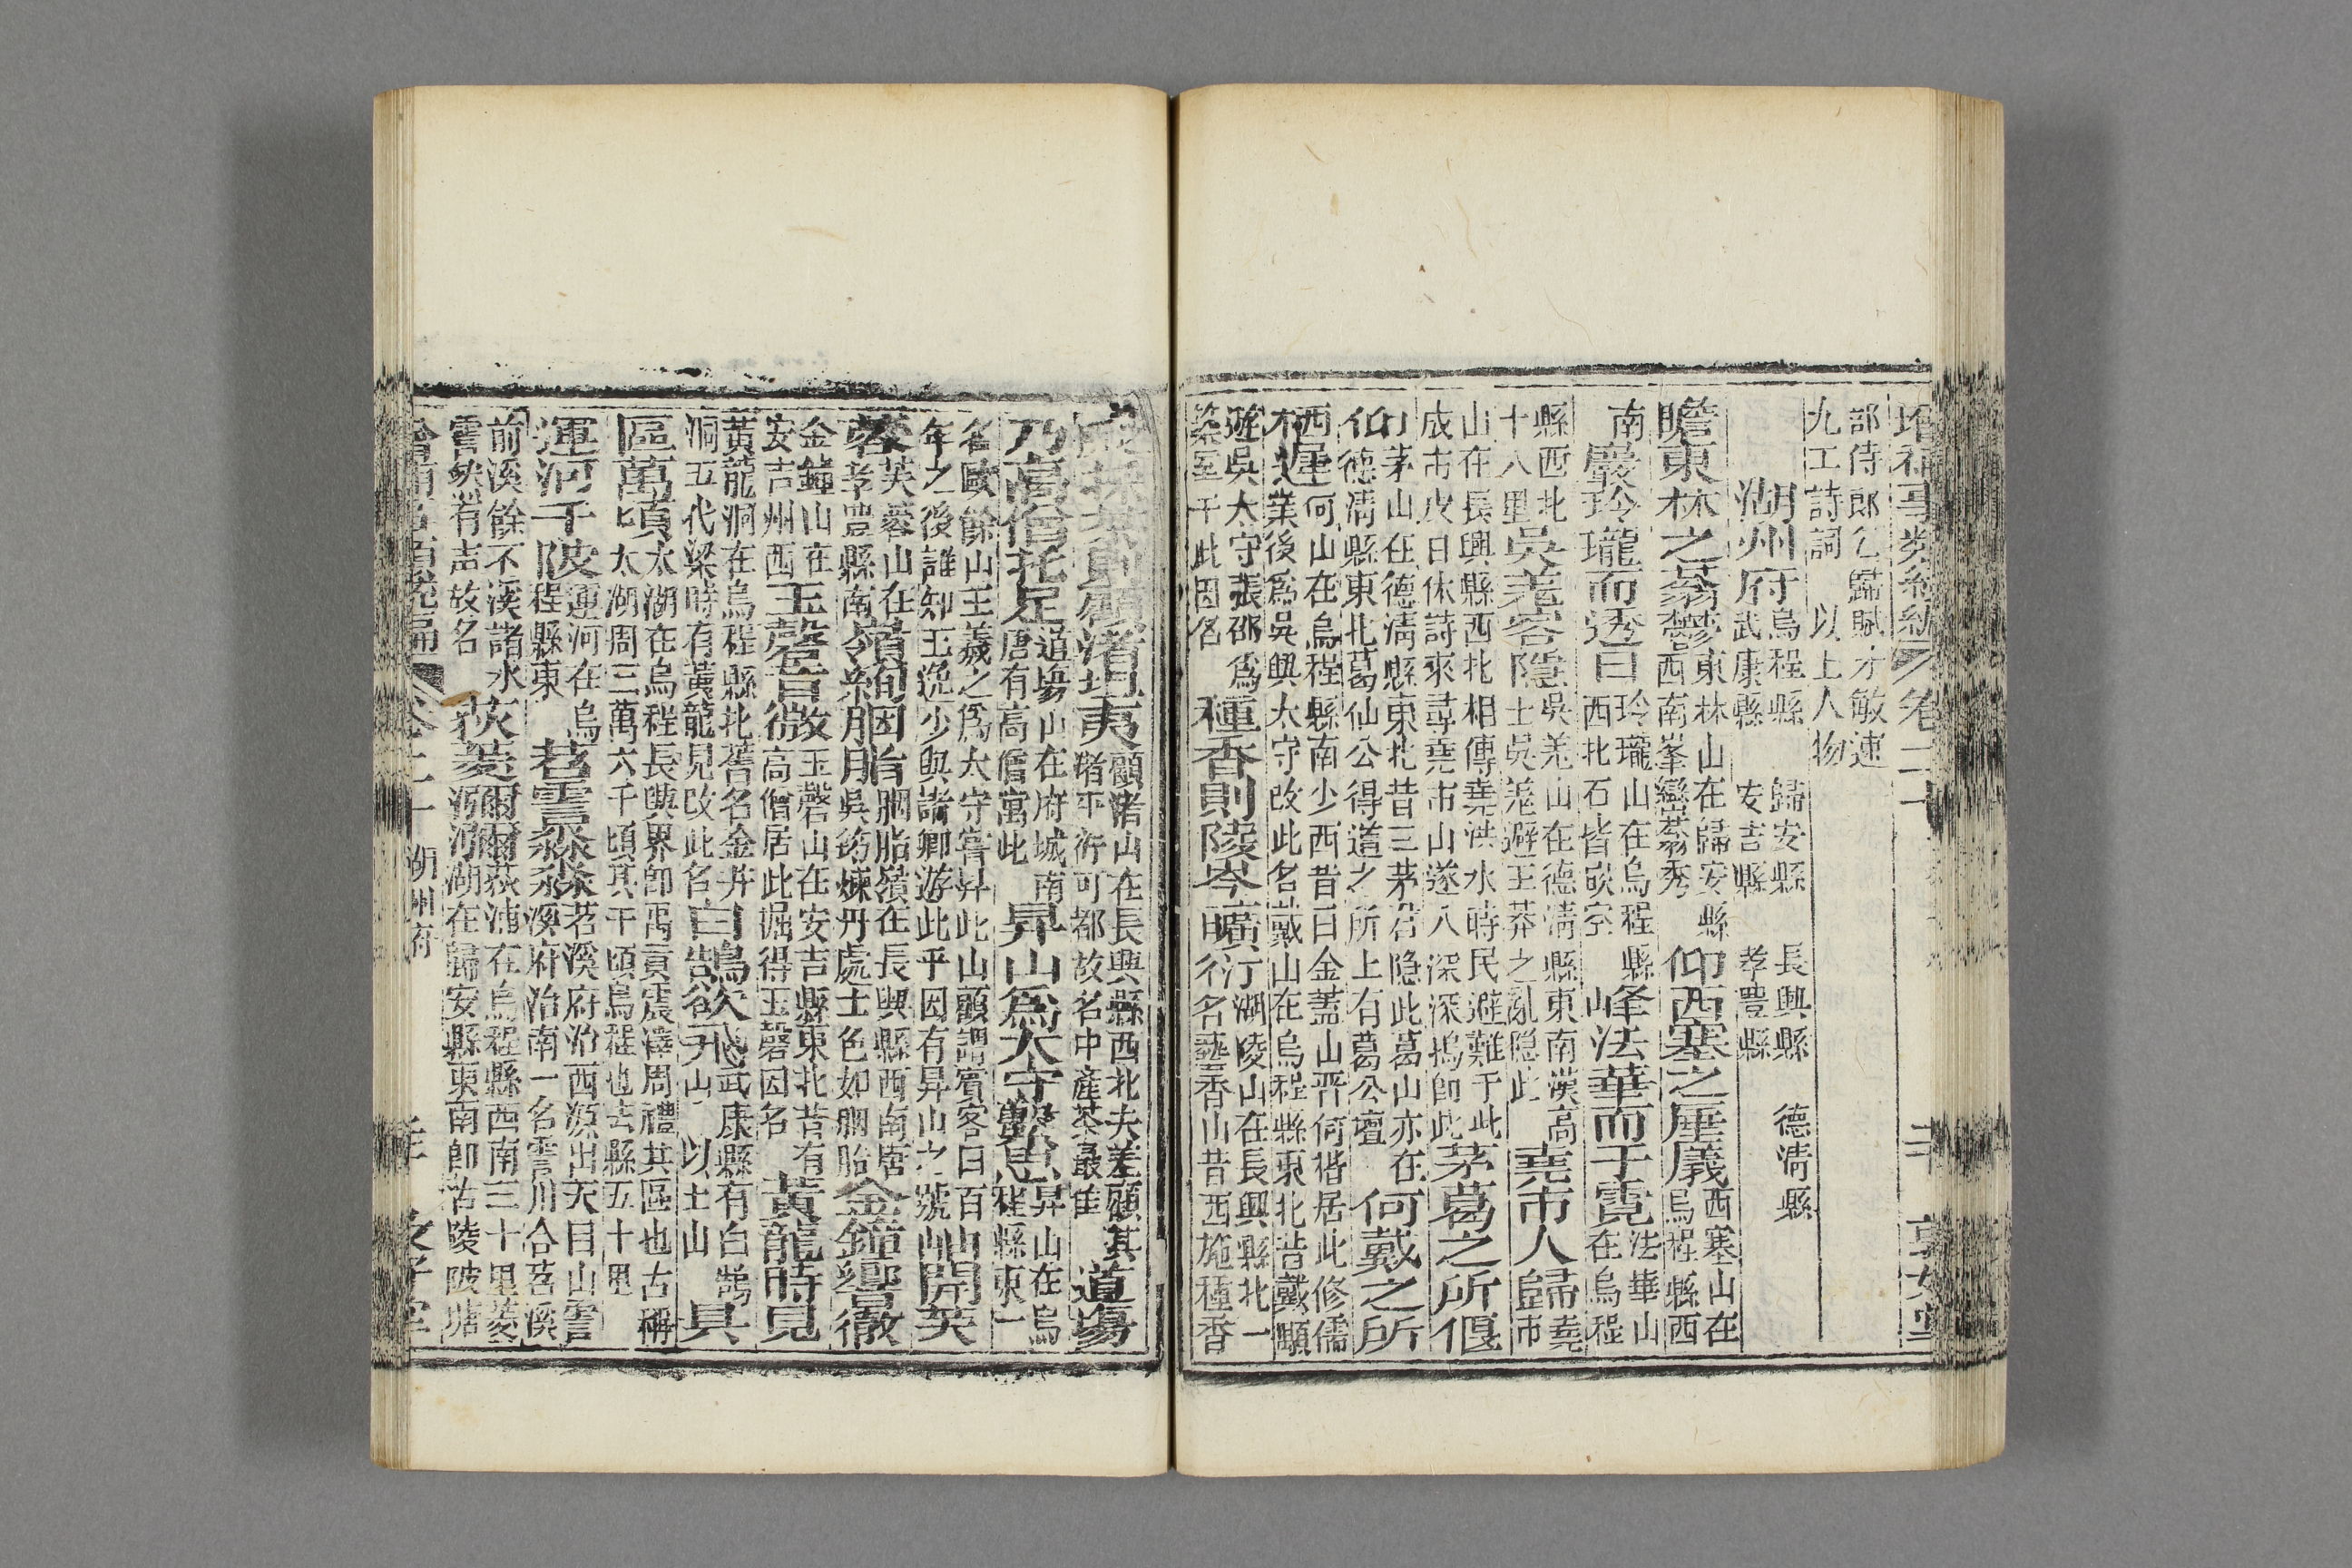 部侍郎公歸賦才敏速
九工詩詞　以上人物
湖州府烏程縣　歸安縣　長興縣　德清縣
武康縣　安吉縣　孝豐縣
瞻東林之蓊鬱東林山在歸安縣西南峯巒蓊秀仰西塞之厜㕒西塞山在烏程縣西
南巖玲瓏而透日玲瓏山在烏程縣西北石皆嵌空峰法華而干霓法華山在烏程
縣西北十八里吳羌容隱吳羌山在德清縣東南漢高士吳羌避王莽之亂隐此堯市人歸堯市
山在長興縣西北相傳堯洪水時民避難于此成市皮日休詩來尋堯市山遂入深深塢即此茅葛之所偃
茅山在德清縣東北昔三茅君隐此葛山亦在德清縣東北葛仙公得道之所上有葛公壇何戴之所
栖遲何山在烏程縣南少西昔曰金蓋山晋何楷居此修儒業後為吳興太守改此名戴山在烏程縣東北昔戴顒
遊吳太守張邵為築室于此因名種香則陵岑曠衍湖陵山在長興縣北一名藝香山昔西施種香
採茶則顧渚坦夷顧渚山在長興縣西北夫差顧其渚平衍可都故名中產茶最佳道場
乃高僧托足道塲山在府城南唐有高僧寓此昇山為太守繫思昇山在烏程縣東一
名歐餘山王羲之為太守嘗昇此山顧謂賓客曰百年之後誰知王逸少與諸卿游此乎因有昇山之號岫開芙
蓉芙蓉山在孝豊縣南嶺絢胭脂胭脂嶺在長興縣西南唐吳筠煉丹處土色如胭胎金鐘響徹
金鐘山在安吉州西玉磬音微玉磬山在安吉縣東北昔有高僧居此掘得玉磬因名黃龍時見
黃龍洞在烏程縣北舊名金井洞五代梁時有黃龍見改此名白鵠欲飛武康縣有白鵠山　以土山具
區萬頃太湖在烏程長與界卽禹貢震澤周禮其區也古稱太湖周三萬六千頃其千頃烏程也去縣五十里
運河千陂運河在烏程縣東苕霅淼淼苕溪府治西源出天目山霅溪府治南一名霅川合苕溪
前溪餘不溪諸水霅然有声故名荻菱瀰瀰荻浦在烏程縣西南三十里菱湖在歸安縣東南卽古陵陂塘
湖州府